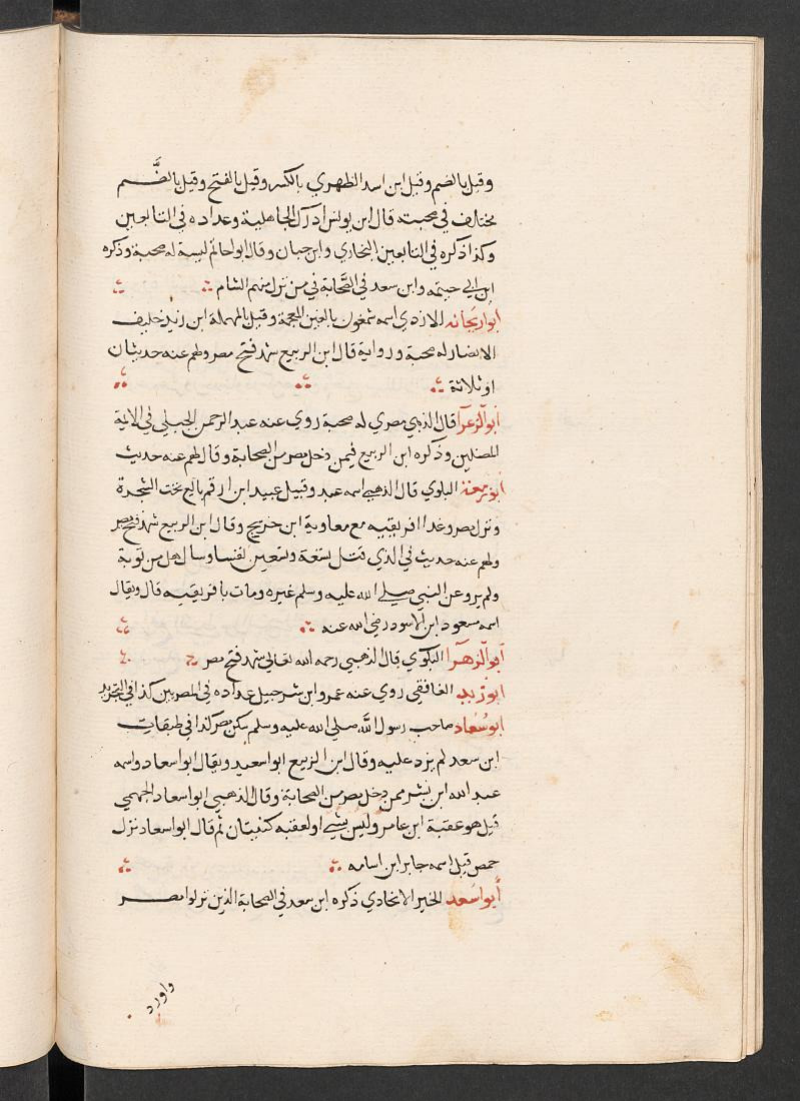 وقيل بالضم وقيل ابن اسد الطهري بالكسر وقيل بالفتح وقيل بالضَّم
مختلف في صحبته قال ابن يونس ادرك الجاهلية وعداده في التابعين
وكذا ذكره في التابعين البخاري وابن حبان وقال ابو احاتم ليسة له صحبة وذكره
ابن ابي حيثمه وابن سعد في الصَّحابة في من نزل منهم الشام
ابو اريحانه الازدي اسمه شمغون بالغين المعجمة وقيل بالمهملة ابن زيد خليف
الانصار له صحبة ورواية قال ابن الربيع شهد فتح مصر ولهم عنه حديثان
او ثلاثة
ابو الزعرآ قال الذهبي مصري له صحبة روي عنه عبد الرحمن الجبلي في الاية
المضلين وذكره ابن الربيع فيمن دخل مصر من الصحابة وقال لهم عنه حديث
ابو زمعة البلوي قال الذهبي اسمه عبد وقيل عبيد ابن ارقم بايع تحت الشجرة
ونزل مصر وغدا افريقيه مع معاوية ابن خريج وقال ابن الربيع شهد فتح مصر
ولهم عنه حديث في الذي قتل تسعة وتسعين نفسا وسال هل من توبة
ولم يرو عن النبي صلى الله عليه وسلم غيره ومات بافريقيه قال ويقال
اسمه مسعود ابن الاسود رضي الله عنه
ابو الزهرآ البكوي قال الذهبي رحمه الله تعالي شهد فتح مصر
ابو زيد الغافقي روي عنه عمرو ابن شرحبيل عداده في المصريين كذا في التجريد
ابو سُعاد صاحب رسول الله صلى الله عليه وسلم سكن مصر كذا في طبقات
ابن سعد لم يزد عليه وقال ابن الربيع ابو اسعيد ويقال ابو اسعاد واسمه
عبد الله ابن بشر ممن دخل مصر من الصحابة وقال الذهبي ابو اسعاد الجهمي
قيل هو عقبة ابن عامر وليس بشي او لعقبه كنيتان ثم قال ابو اسعاد نزل
حمص قيل اسمه جابر ابن اسامه
أبو اسعد الخير الانخادي ذكره ابن سعد في الصحابة الذين نزلوا مصر
واورد